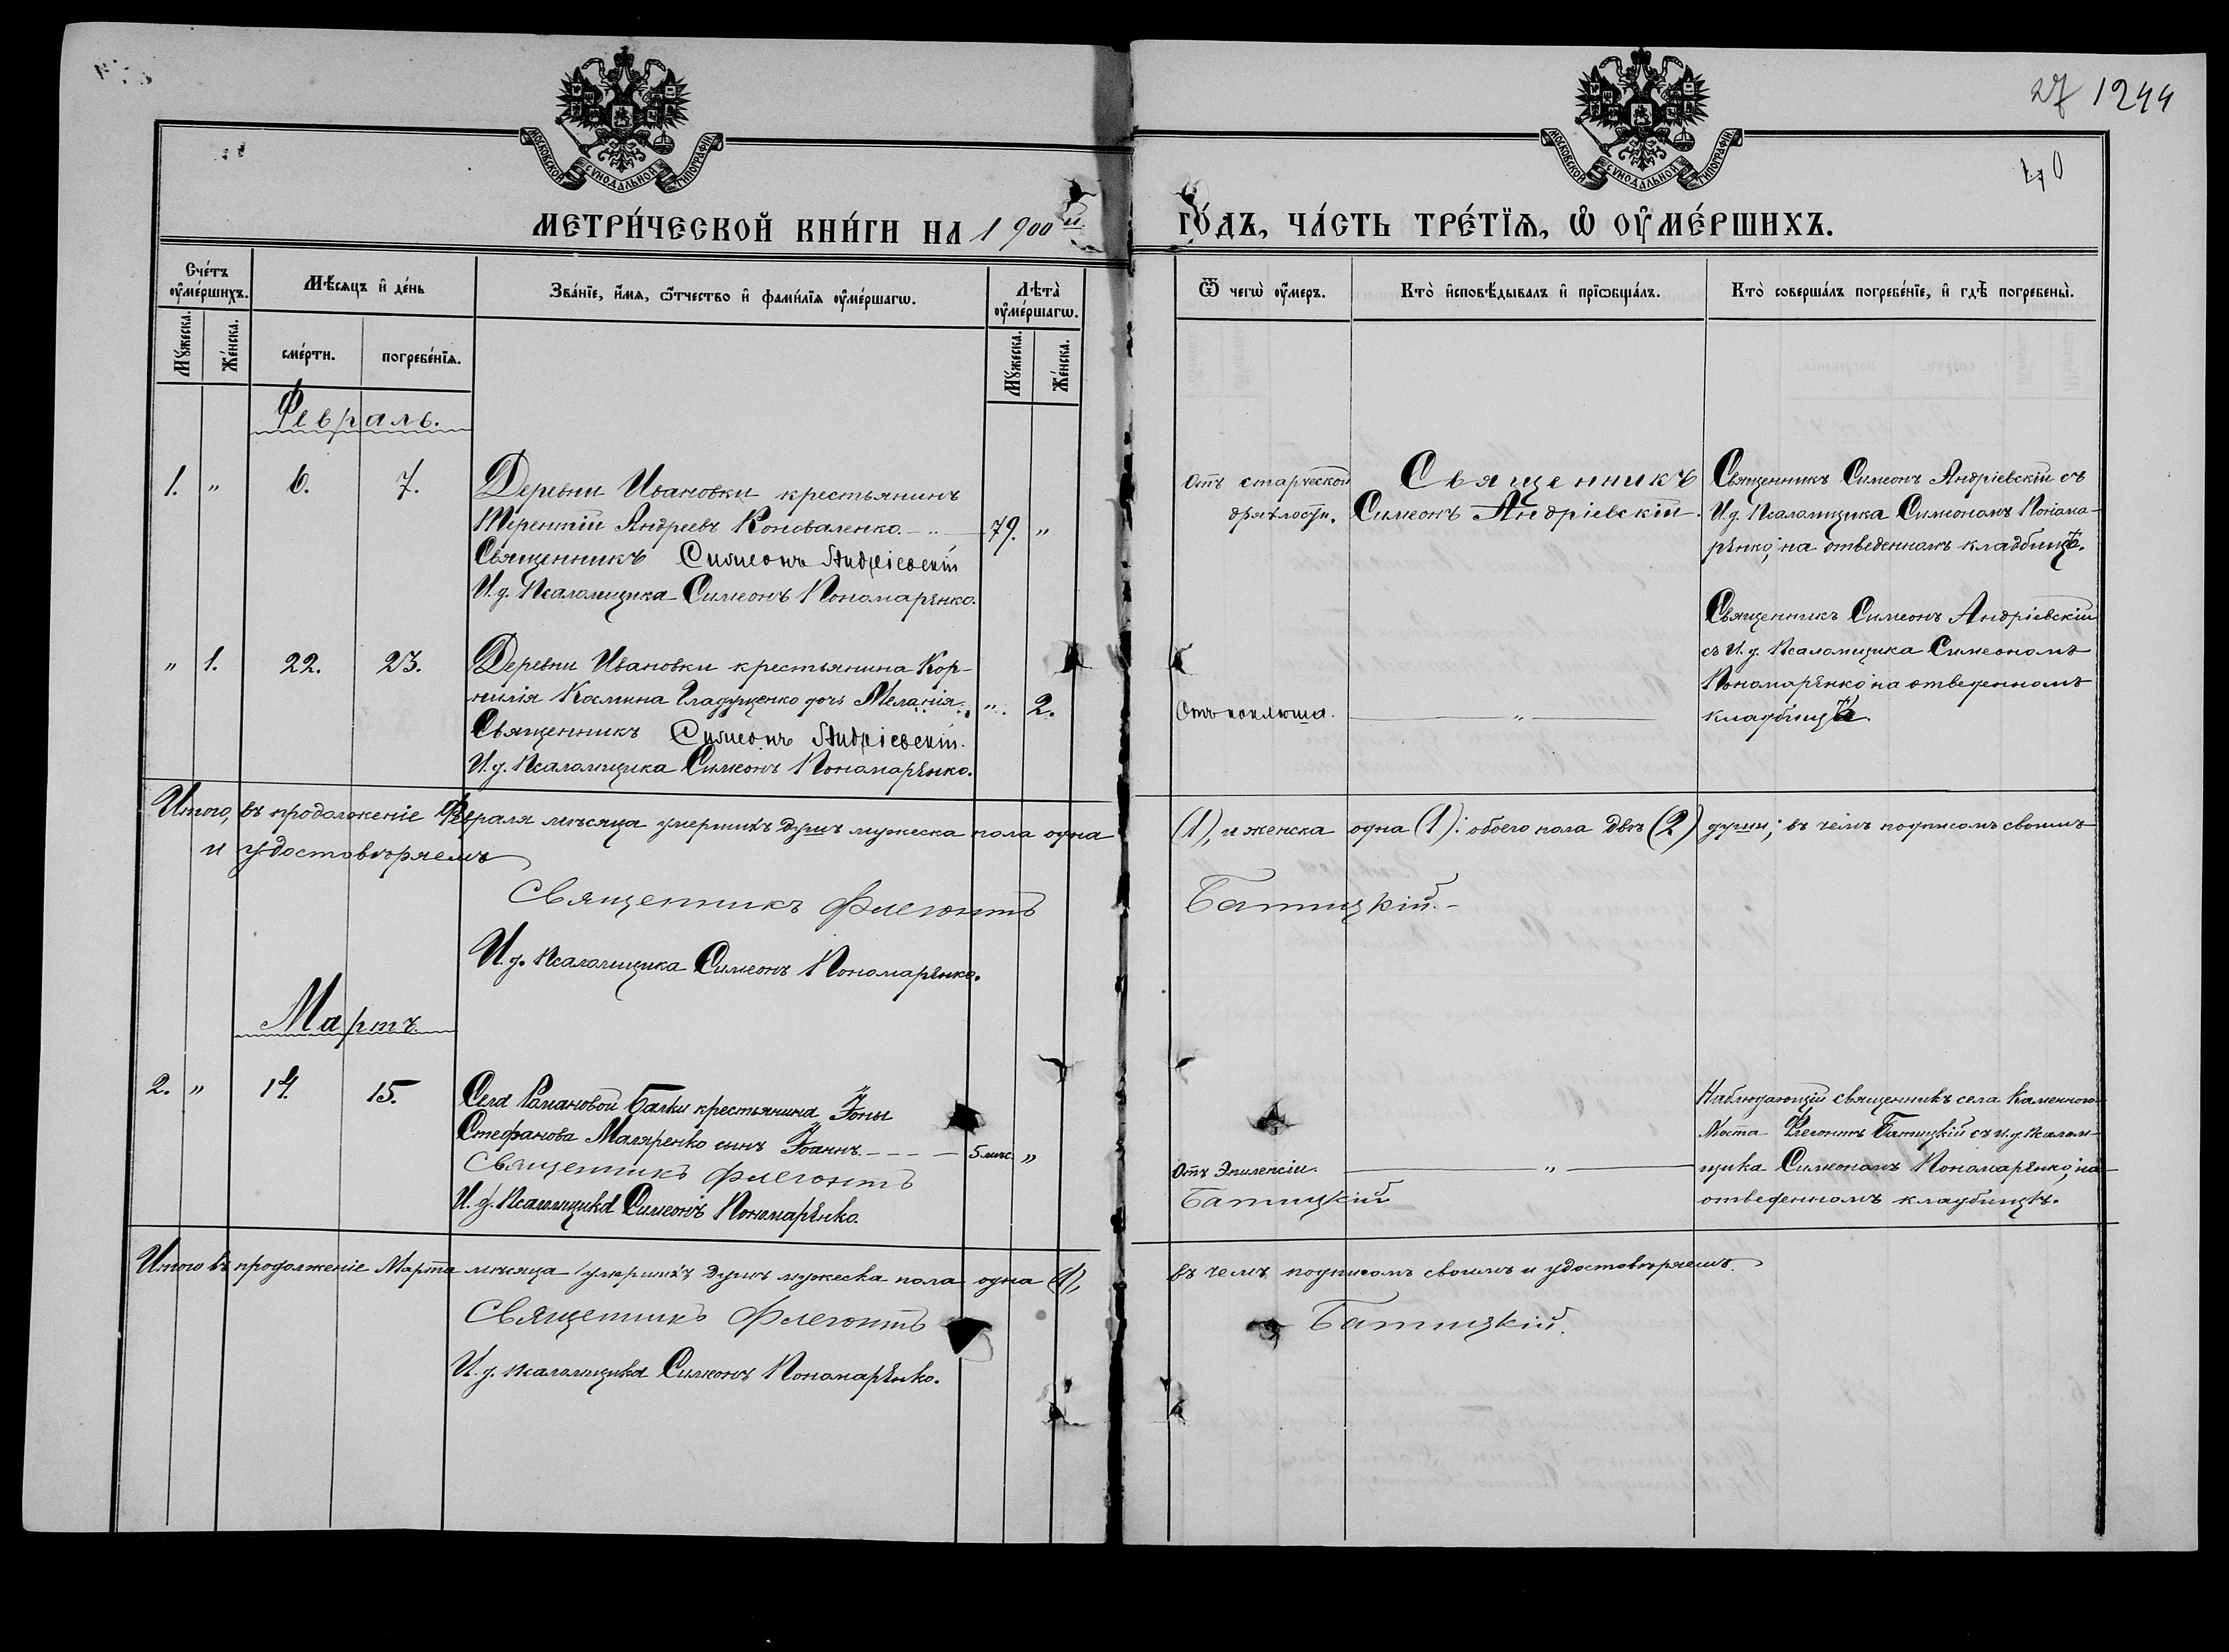 27 1244
40
МОСКОВСКОЙ СѴНОДАЛЬНОЙ ТИПОГРАФІИ
МОСКОВСКОЙ СѴНОДАЛЬНОЙ ТИПОГРАФІИ
МЕТРИ́ЧЕСКОЙ КНИ́ГИ НА 1900й ГО́ДЪ, ЧА́СТЬ ТРЕ́ТЇѦ, Ѡ҆ ОУ҆МЕ́РШИХЪ.
Сче́тъ оу҆ме́ршихъ.
Мꙋ́жеска.
Же́нска.
Мѣ́сяцъ и҆ де́нь
сме́рти.
погребе́нїѧ.
Зва́нїе, и҆́мѧ, ѻ҆́тчество и҆ фами́лїѧ оу҆ме́ршагѡ.
Лѣта̀ оу҆ме́ршагѡ.
Мꙋ́жеска.
Же́нска.
Ѿ чегѡ̀ оу҆́меръ.
Кто̀ и҆сповѣ́дывалъ и҆ прїѡбща́лъ.
Кто̀ соверша́лъ погребе́нїе, и҆ гдѣ̀ погребены̀.
Февраль.
1. " 6. 7. Деревни Ивановки крестьянинъ
Терентій Андреевъ Коноваленко. 79. "
Священникъ Симеонъ Андріевскій
И.д. Псаломщика Симеонъ Пономарѣнко.
Отъ старческой
дряхлости.
Священникъ
Симеонъ Андріевскій.
Священникъ Симеонъ Андріевскій съ
И.д. Псаломщика Симеономъ Понома-
рѣнко; на отведенномъ кладбищѣ.
" 1. 22. 23. Деревни Ивановки крестьянина Кор-
нилія Космина Гладущенко дочь Меланія. " 2.
Священникъ Симеонъ Андріевскій.
И.д. Псаломщика Симеонъ Пономарѣнко.
Отъ коклюша. "
Священникъ Симеонъ Андріевскій
съ И.д. Псаломщика Симеономъ
Пономарѣнко; на отведенномъ
кладбищѣ.
Итого, въ продолженіе Февраля мѣсяца умершихъ душъ мужеска пола одна (1), и женска одна (1): обоего пола двѣ (2) души; въ чемъ подписомъ своимъ
и удостовѣряемъ
Священникъ Флегонтъ Батицкій.
И.д. Псаломщика Симеонъ Пономарѣнко.
Мартъ.
2. " 14. 15. Села Романовой Балки крестьянина Іоны
Стефанова Маляренко сынъ Іоаннъ. 5 мѣс. "
Священникъ Флегонтъ Батицкій
И.д. Псаломщика Симеонъ Пономарѣнко.
Отъ Эпилепсіи. "
Наблюдающій священникъ села Каменного-
Моста Флегонтъ Батицкій съ и.д. псалом-
щика Симеономъ Пономарѣнко; на
отведенномъ кладбищѣ.
Итого въ продолженіе Марта мѣсяца умершихъ душъ мужеска пола одна (1), въ чемъ подписомъ своимъ и удостовѣряемъ.
Священникъ Флегонтъ Батицкій.
И.д. псаломщика Симеонъ Пономарѣнко.